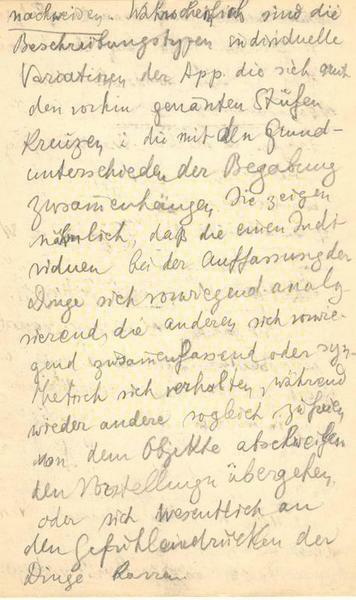 nachweisen. Wahrscheinlich sind die
Beschreibungstypen individuelle
Variationen der App. die sich mit
den vorhin genanten Stufen
Kreuzen u die mit den Grund-
unterschieden der Begabung
zusammenhängen. Sie zeigen
nämlich, daß die einen Indi
viduen bei der Auffassung der
Dinge sich vorwiegend analy
sierend, die anderen sich vorwie-
gend zusammenfassend oder syn-
thetisch sich verhalten, während
wieder andere sogleich zu freien
von dem Objekte abschweifen
den Vorstellungen übergehen,
oder sich wesentlich an
den Gefühleindrücken der
Dinge